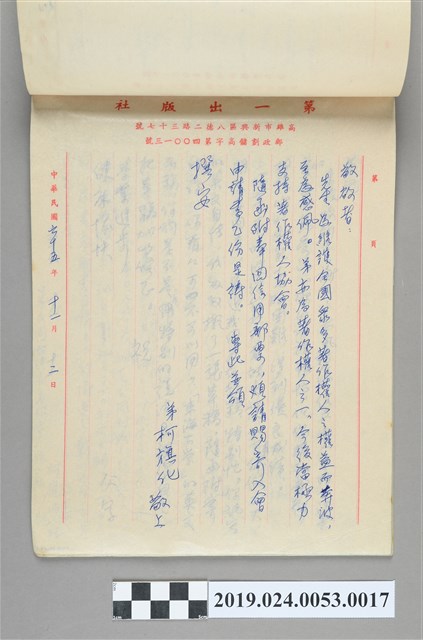 第一出版社
高雄市新興第八德二路三十七號
郵政劃儲高字第四〇〇一三號
第　頁
敬啟者：
先生為維護全國眾多著作權人之權益而奔波，
至為感佩。弟亦為著作權人之一。今後當極力
支持著作權人協會。
隨函附奉回信用郵票，煩請賜寄入會
申請書乙份是禱。專此並頌
撰安
弟柯旗化敬上
中華民國六十五年十一月十二日
2019.024.0053.0017